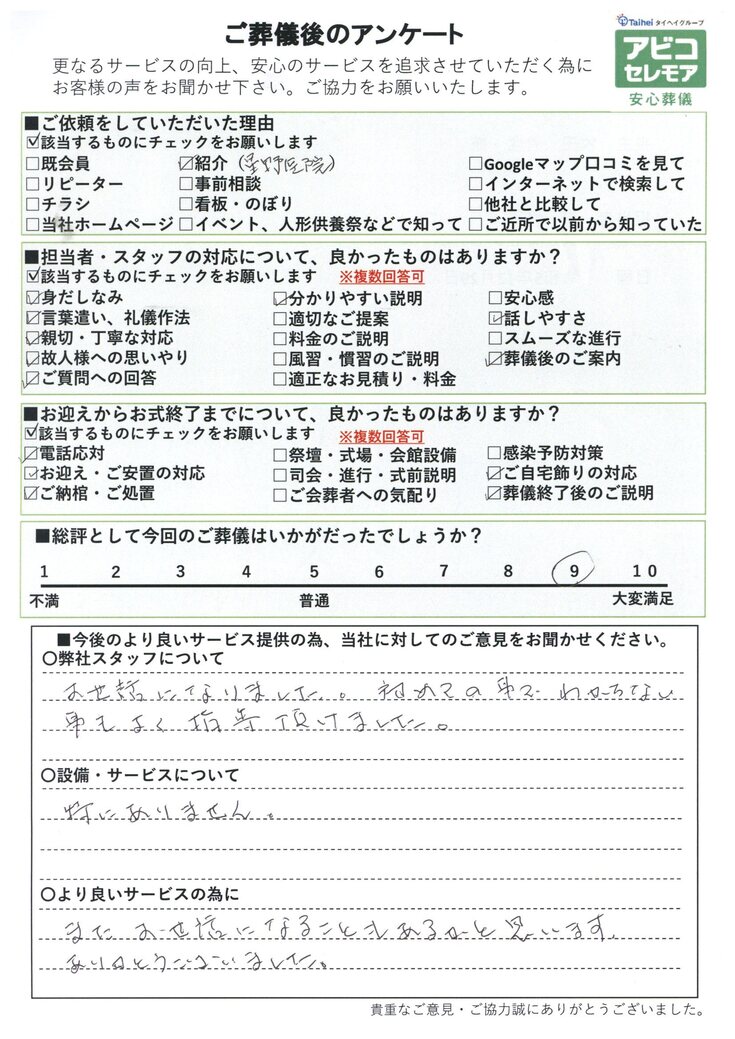 ご葬儀後のアンケート
Taihei タイヘイグループ
アビコ
セレモア
安心葬儀
更なるサービスの向上、安心のサービスを追求させていただく為に
お客様の声をお聞かせ下さい。ご協力をお願いいたします。
■ご依頼をしていただいた理由
☑該当するものにチェックをお願いします
□既会員 ☑紹介(星野医院) □Googleマップ口コミを見て
□リピーター □事前相談 □インターネットで検索して
□チラシ □看板・のぼり □他社と比較して
□当社ホームページ □イベント、人形供養祭などで知って □ご近所で以前から知っていた
■担当者・スタッフの対応について、良かったものはありますか？
☑該当するものにチェックをお願いします ※複数回答可
☑身だしなみ ☑分かりやすい説明 □安心感
☑言葉遣い、礼儀作法 □適切なご提案 ☑話しやすさ
☑親切・丁寧な対応 □料金のご説明 □スムーズな進行
☑故人様への思いやり □風習・慣習のご説明 ☑葬儀後のご案内
☑ご質問への回答 □適正なお見積り・料金
■お迎えからお式終了までについて、良かったものはありますか？
☑該当するものにチェックをお願いします ※複数回答可
☑電話応対 □祭壇・式場・会館設備 □感染予防対策
☑お迎え・ご安置の対応 □司会・進行・式前説明 ☑ご自宅飾りの対応
☑ご納棺・ご処置 □ご会葬者への気配り ☑葬儀終了後のご説明
■総評として今回のご葬儀はいかがだったでしょうか？
1 2 3 4 5 6 7 8 9 10
不満 普通 大変満足
■今後のより良いサービス提供の為、当社に対してのご意見をお聞かせください。
〇弊社スタッフについて
お世話になりました。初めての事で わからない
事もよく指導頂けました。
〇設備・サービスについて
特にありません。
〇より良いサービスの為に
また お世話になることもあるかと思います。
ありがとうございました。
貴重なご意見・ご協力誠にありがとうございました。